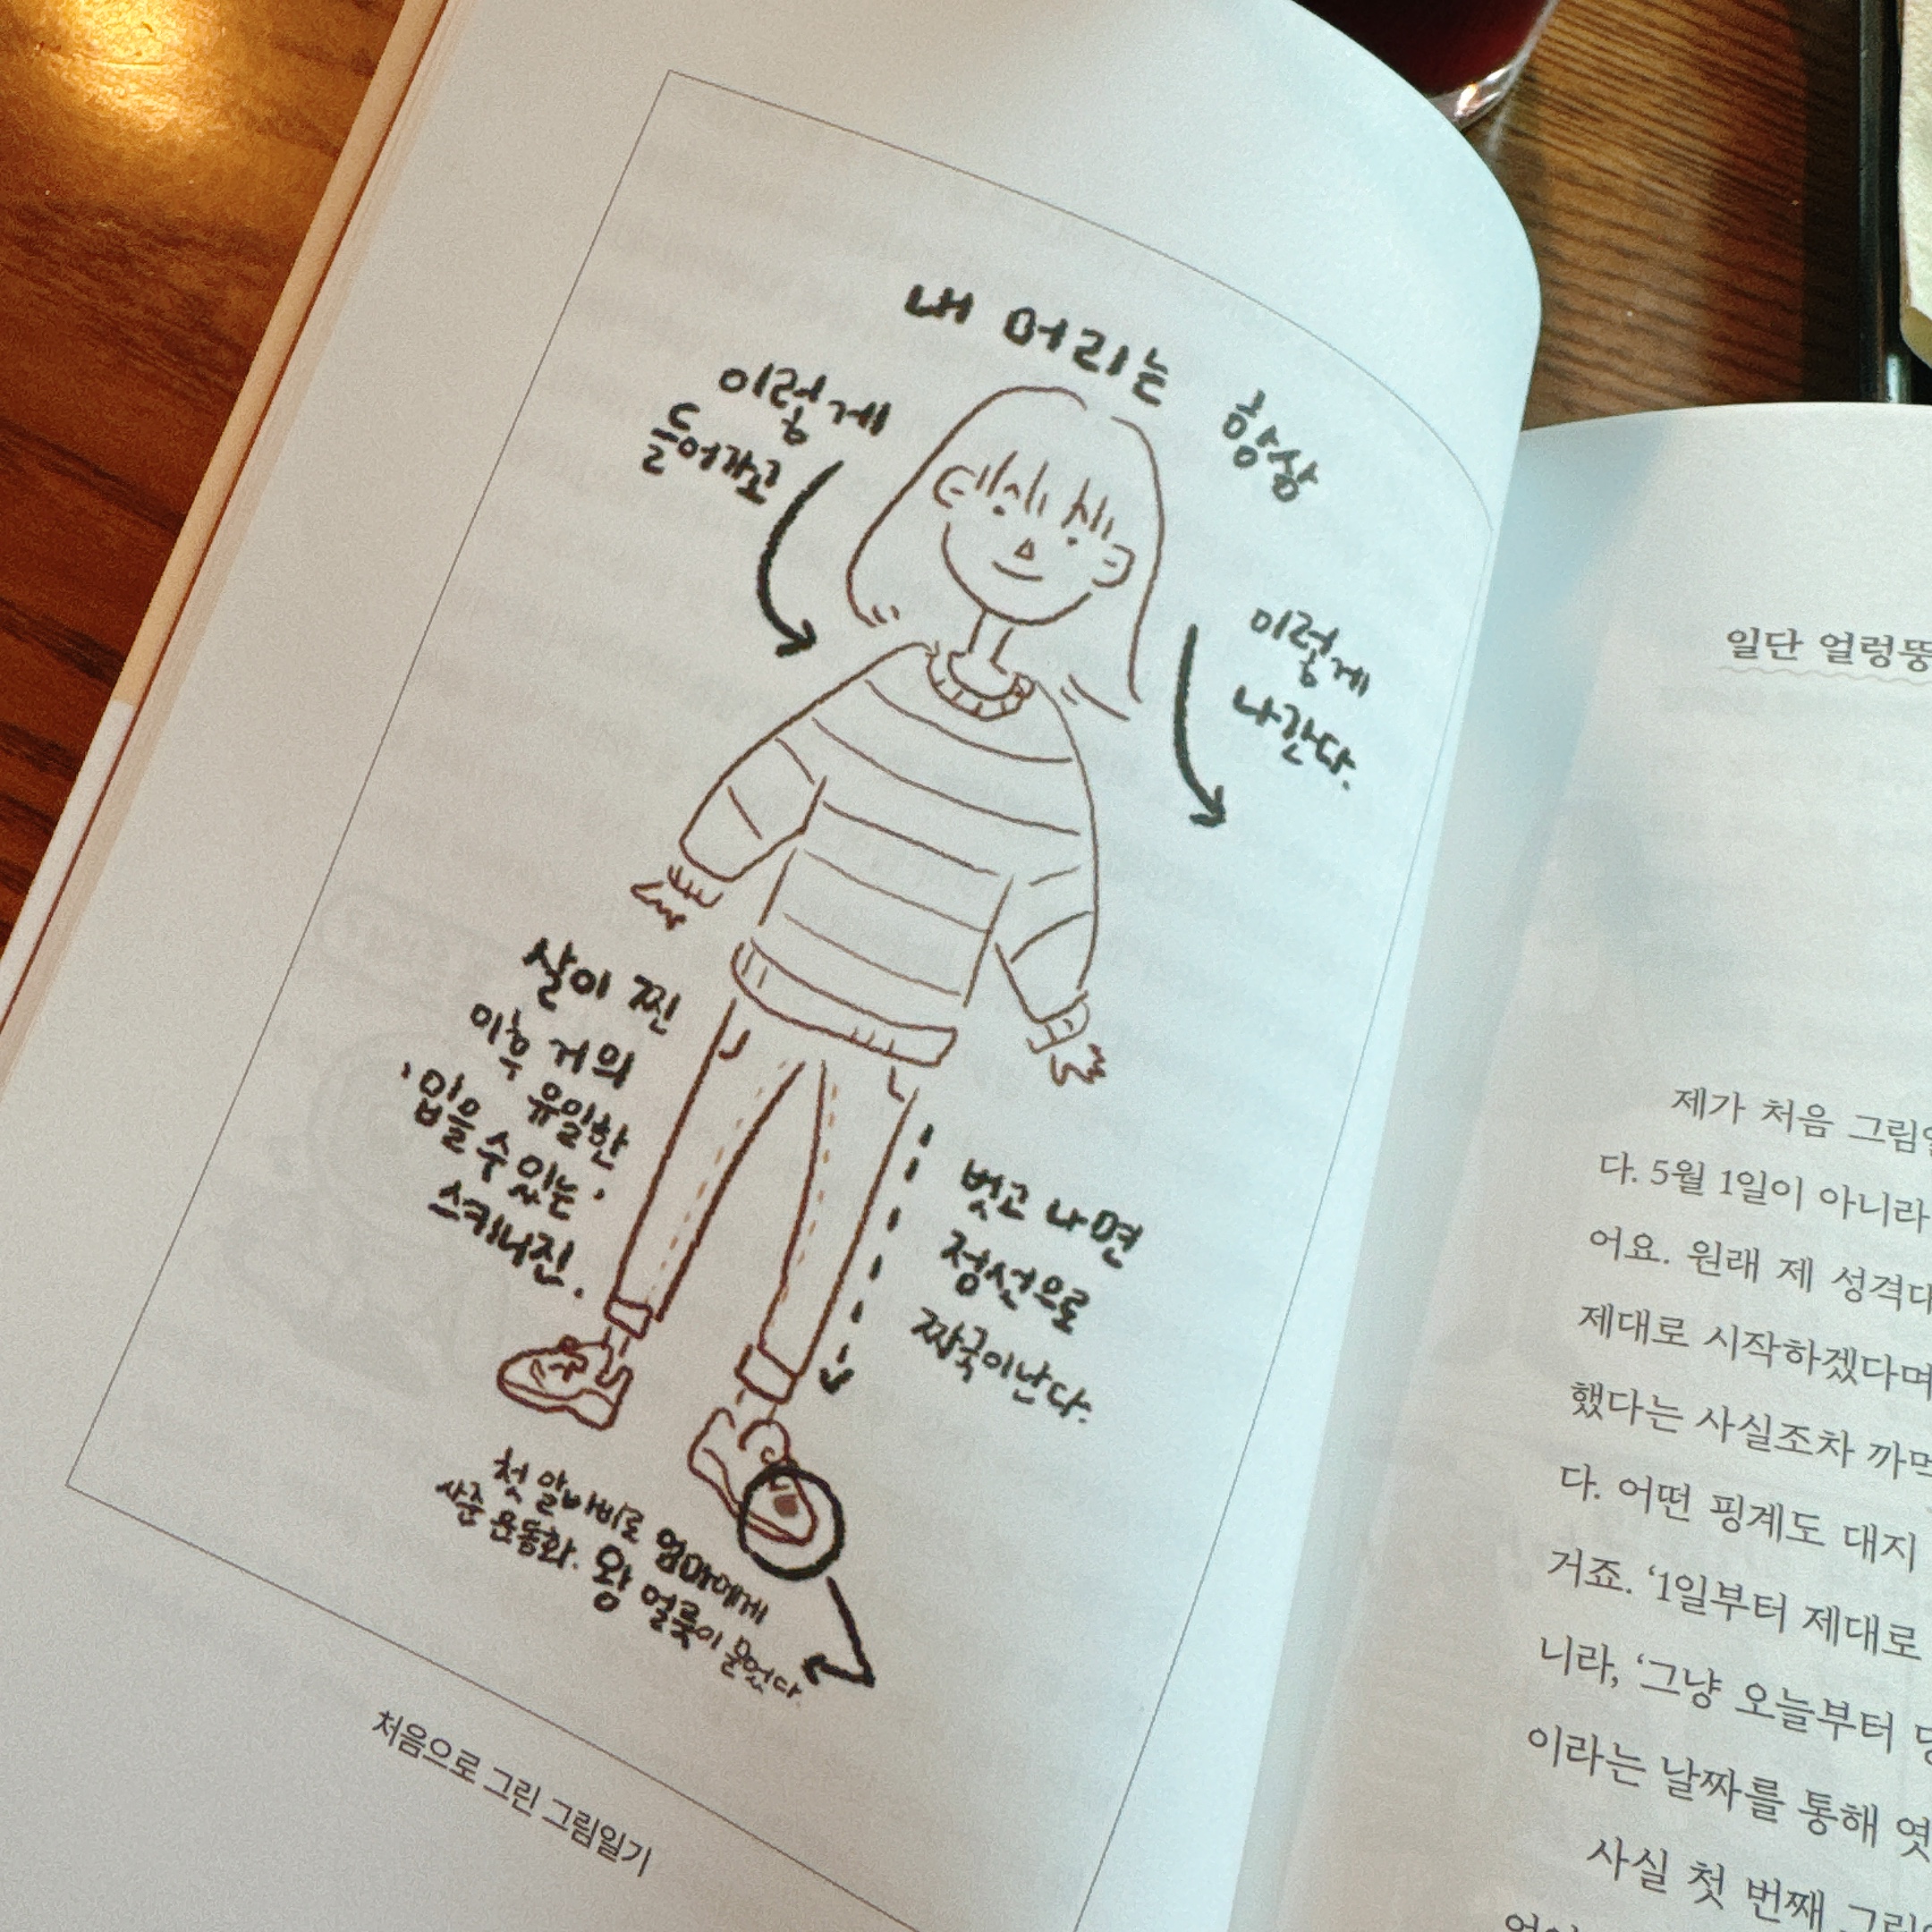 내 머리는 항상
이렇게
들어가고
이렇게
나간다.
살이 찐
이후 거의
유일한
'입을 수 있는'
스키니진.
벗고 나면
정선으로
짜국이난다.
첫 알바비로 엄마에게
사준 운동화. 왕 얼룩이 묻었다.
처음으로 그린 그림일기
일단 얼렁뚱
제가 처음 그림일
다. 5월 1일이 아니라
어요. 원래 제 성격대
제대로 시작하겠다며
했다는 사실조차 까먹
다. 어떤 핑계도 대지
거죠. '1일부터 제대로
니라, '그냥 오늘부터
이라는 날짜를 통해 엿
사실 첫 번째 그림